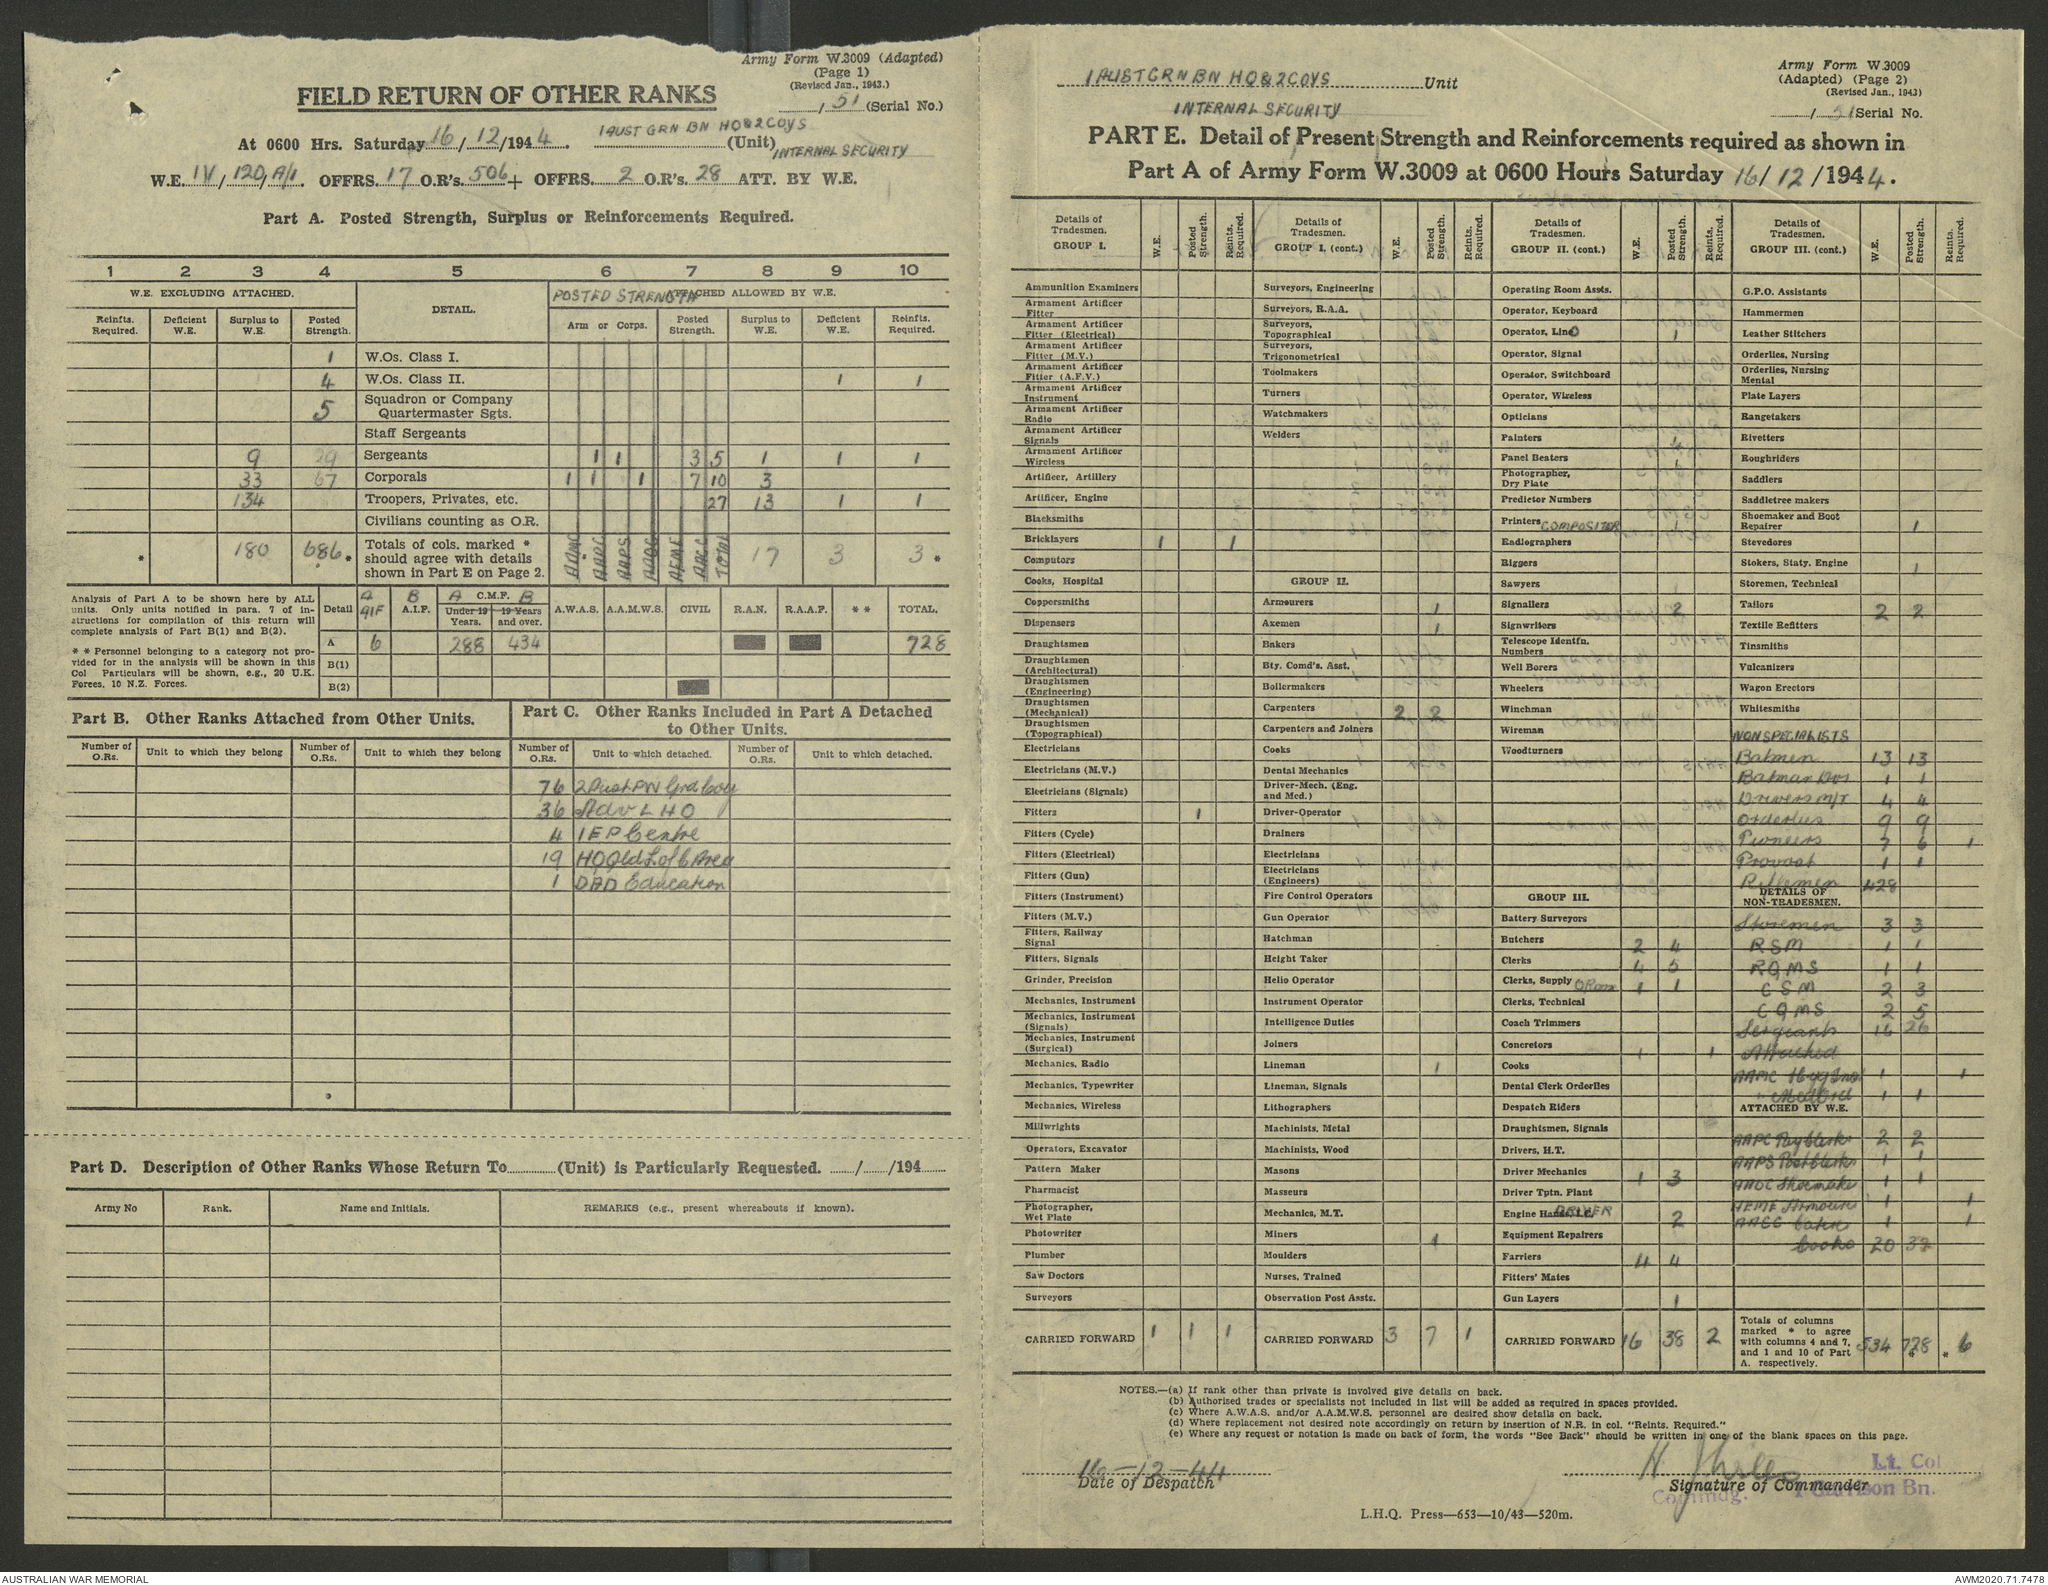 Army Form W.3009 (Adapted)
(Page 1)
(Revised Jan., 1943.)
/ 51 (Serial No.)
FIELD RETURN OF OTHER RANKS
At 0600 Hrs. Saturday 16/12/1944. 1 AUST GRN BN HQ & 2 COYS (Unit)
INTERNAL SECURITY
W.E. IV/120/A/1. OFFRS. 17 O.R's. 506 + OFFRS. 2 O.R's. 28 ATT. BY W.E.
Part A. Posted Strength, Surplus or Reinforcements Required.
1 2 3 4 5 6 7 8 9 10
W.E. EXCLUDING ATTACHED. DETAIL. POSTED STRENGTH ATTACHED ALLOWED BY W.E.
Reinfts. Required. Deficient W.E. Surplus to W.E. Posted Strength. Arm or Corps. Posted Strength. Surplus to W.E. Deficient W.E. Reinfts. Required.
1 W.Os. Class I.
4 W.Os. Class II. 1 1
5 Squadron or Company Quartermaster Sgts.
Staff Sergeants
9 29 Sergeants 1 1 3 5 1 1 1
33 67 Corporals 1 1 1 7 10 3
134 Troopers, Privates, etc. 27 13 1 1
Civilians counting as O.R.
* 180 686 * Totals of cols. marked * should agree with details shown in Part E on Page 2. AAMC AAPC AAPS AAOC AEME AACC TOTAL 17 3 3 *
Analysis of Part A to be shown here by ALL units. Only units notified in para. 7 of instructions for compilation of this return will complete analysis of Part B(1) and B(2).
* * Personnel belonging to a category not provided for in the analysis will be shown in this Col Particulars will be shown, e.g., 20 U.K. Forces, 10 N.Z. Forces.
Detail A AIF B A.I.F. A C.M.F. B Under 19 Years. 19 Years and over. A.W.A.S. A.A.M.W.S. CIVIL R.A.N. R.A.A.F. * * TOTAL.
A 6 288 434 728
B(1)
B(2)
Part B. Other Ranks Attached from Other Units.
Number of O.Rs. Unit to which they belong Number of O.Rs. Unit to which they belong
Part C. Other Ranks Included in Part A Detached to Other Units.
Number of O.Rs. Unit to which detached. Number of O.Rs. Unit to which detached.
76 2 Aust PW Grd Coy
36 Adv L H Q
4 1 EP Centre
19 HQ Qld L of C Area
1 DAD Education
Part D. Description of Other Ranks Whose Return To (Unit) is Particularly Requested. / /194
Army No Rank. Name and Initials. REMARKS (e.g., present whereabouts if known).
1 AUST GRN BN HQ & 2 COYS Unit
INTERNAL SECURITY
Army Form W.3009
(Adapted) (Page 2)
(Revised Jan., 1943)
/ 51 Serial No.
PART E. Detail of Present Strength and Reinforcements required as shown in
Part A of Army Form W.3009 at 0600 Hours Saturday 16/12/1944.
Details of Tradesmen. GROUP I. W.E. Posted Strength. Reints. Required.
Ammunition Examiners
Armament Artificer Fitter
Armament Artificer Fitter (Electrical)
Armament Artificer Fitter (M.V.)
Armament Artificer Fitter (A.F.V.)
Armament Artificer Instrument
Armament Artificer Radio
Armament Artificer Signals
Armament Artificer Wireless
Artificer, Artillery
Artificer, Engine
Blacksmiths
Bricklayers 1 1
Computors
Cooks, Hospital
Coppersmiths
Dispensers
Draughtsmen
Draughtsmen (Architectural)
Draughtsmen (Engineering)
Draughtsmen (Mechanical)
Draughtsmen (Topographical)
Electricians
Electricians (M.V.)
Electricians (Signals)
Fitters 1
Fitters (Cycle)
Fitters (Electrical)
Fitters (Gun)
Fitters (Instrument)
Fitters (M.V.)
Fitters, Railway Signal
Fitters, Signals
Grinder, Precision
Mechanics, Instrument
Mechanics, Instrument (Signals)
Mechanics, Instrument (Surgical)
Mechanics, Radio
Mechanics, Typewriter
Mechanics, Wireless
Millwrights
Operators, Excavator
Pattern Maker
Pharmacist
Photographer, Wet Plate
Photowriter
Plumber
Saw Doctors
Surveyors
CARRIED FORWARD 1 1 1
Details of Tradesmen. GROUP I. (cont.) W.E. Posted Strength. Reints. Required.
Surveyors, Engineering
Surveyors, R.A.A.
Surveyors, Topographical
Surveyors, Trigonometrical
Toolmakers
Turners
Watchmakers
Welders
GROUP II.
Armourers 1
Axemen 1
Bakers
Bty. Comd's. Asst.
Boilermakers
Carpenters 2 2
Carpenters and Joiners
Cooks
Dental Mechanics
Driver-Mech. (Eng. and Med.)
Driver-Operator
Drainers
Electricians
Electricians (Engineers)
Fire Control Operators
Gun Operator
Hatchman
Height Taker
Helio Operator
Instrument Operator
Intelligence Duties
Joiners
Lineman 1
Lineman, Signals
Lithographers
Machinists, Metal
Machinists, Wood
Masons
Masseurs
Mechanics, M.T.
Miners 1
Moulders
Nurses, Trained
Observation Post Assts.
CARRIED FORWARD 3 7 1
Details of Tradesmen. GROUP II. (cont.) W.E. Posted Strength. Reints. Required.
Operating Room Assts.
Operator, Keyboard
Operator, Lino 1
Operator, Signal
Operator, Switchboard
Operator, Wireless
Opticians
Painters 4
Panel Beaters 1
Photographer, Dry Plate
Predictor Numbers
Printers COMPOSITER 1
Radiographers
Riggers
Sawyers
Signallers 2
Signwriters
Telescope Identfn. Numbers
Well Borers
Wheelers
Winchman
Wireman
Woodturners
GROUP III.
Battery Surveyors
Butchers 2 4
Clerks 4 5
Clerks, Supply O Room 1 1
Clerks, Technical
Coach Trimmers
Concretors 1 1
Cooks
Dental Clerk Orderlies
Despatch Riders
Draughtsmen, Signals
Drivers, H.T.
Driver Mechanics 1 3
Driver Tptn. Plant
Engine Hands, I.C. DRIVER 2
Equipment Repairers
Farriers 4 4
Fitters' Mates
Gun Layers 1
CARRIED FORWARD 16 38 2
Details of Tradesmen. GROUP III. (cont.) W.E. Posted Strength. Reints. Required.
G.P.O. Assistants
Hammermen
Leather Stitchers
Orderlies, Nursing
Orderlies, Nursing Mental
Plate Layers
Rangetakers
Rivetters
Roughriders
Saddlers
Saddletree makers
Shoemaker and Boot Repairer 1
Stevedores
Stokers, Staty. Engine 1
Storemen, Technical
Tailors 2 2
Textile Refitters
Tinsmiths
Vulcanizers
Wagon Erectors
Whitesmiths
NON SPECIALISTS
Batmen 13 13
Batman Dvs 1 1
Drivers M/T 4 4
Orderlies 9 9
Pioneers 7 6 1
Provost 1 1
Riflemen 428
DETAILS OF NON-TRADESMEN.
Storemen 3 3
RSM 1 1
RQMS 1 1
CSM 2 3
CQMS 2 5
Sergeants 16 26
Attached
AAMC Hyg 1 1
" Med Ord 1 1
ATTACHED BY W.E.
AAPC Pay Clerks 2 2
AAPS Post Clerks 1 1
AAOC Shoemaker 1 1
AEME Armourer 1 1
AACC Cater 1 1
Cooks 20 32
Totals of columns marked * to agree with columns 4 and 7, and 1 and 10 of Part A. respectively. 534 728 * * 6
NOTES.—(a) If rank other than private is involved give details on back.
(b) Authorised trades or specialists not included in list will be added as required in spaces provided.
(c) Where A.W.A.S. and/or A.A.M.W.S. personnel are desired show details on back.
(d) Where replacement not desired note accordingly on return by insertion of N.R. in col. "Reints. Required."
(e) Where any request or notation is made on back of form, the words "See Back" should be written in one of the blank spaces on this page.
16-12-44
Date of Despatch
Lt. Col
Signature of Commander
Commdg. 1 Garrison Bn.
L.H.Q. Press—653—10/43—520m.
AUSTRALIAN WAR MEMORIAL
AWM2020.71.7478